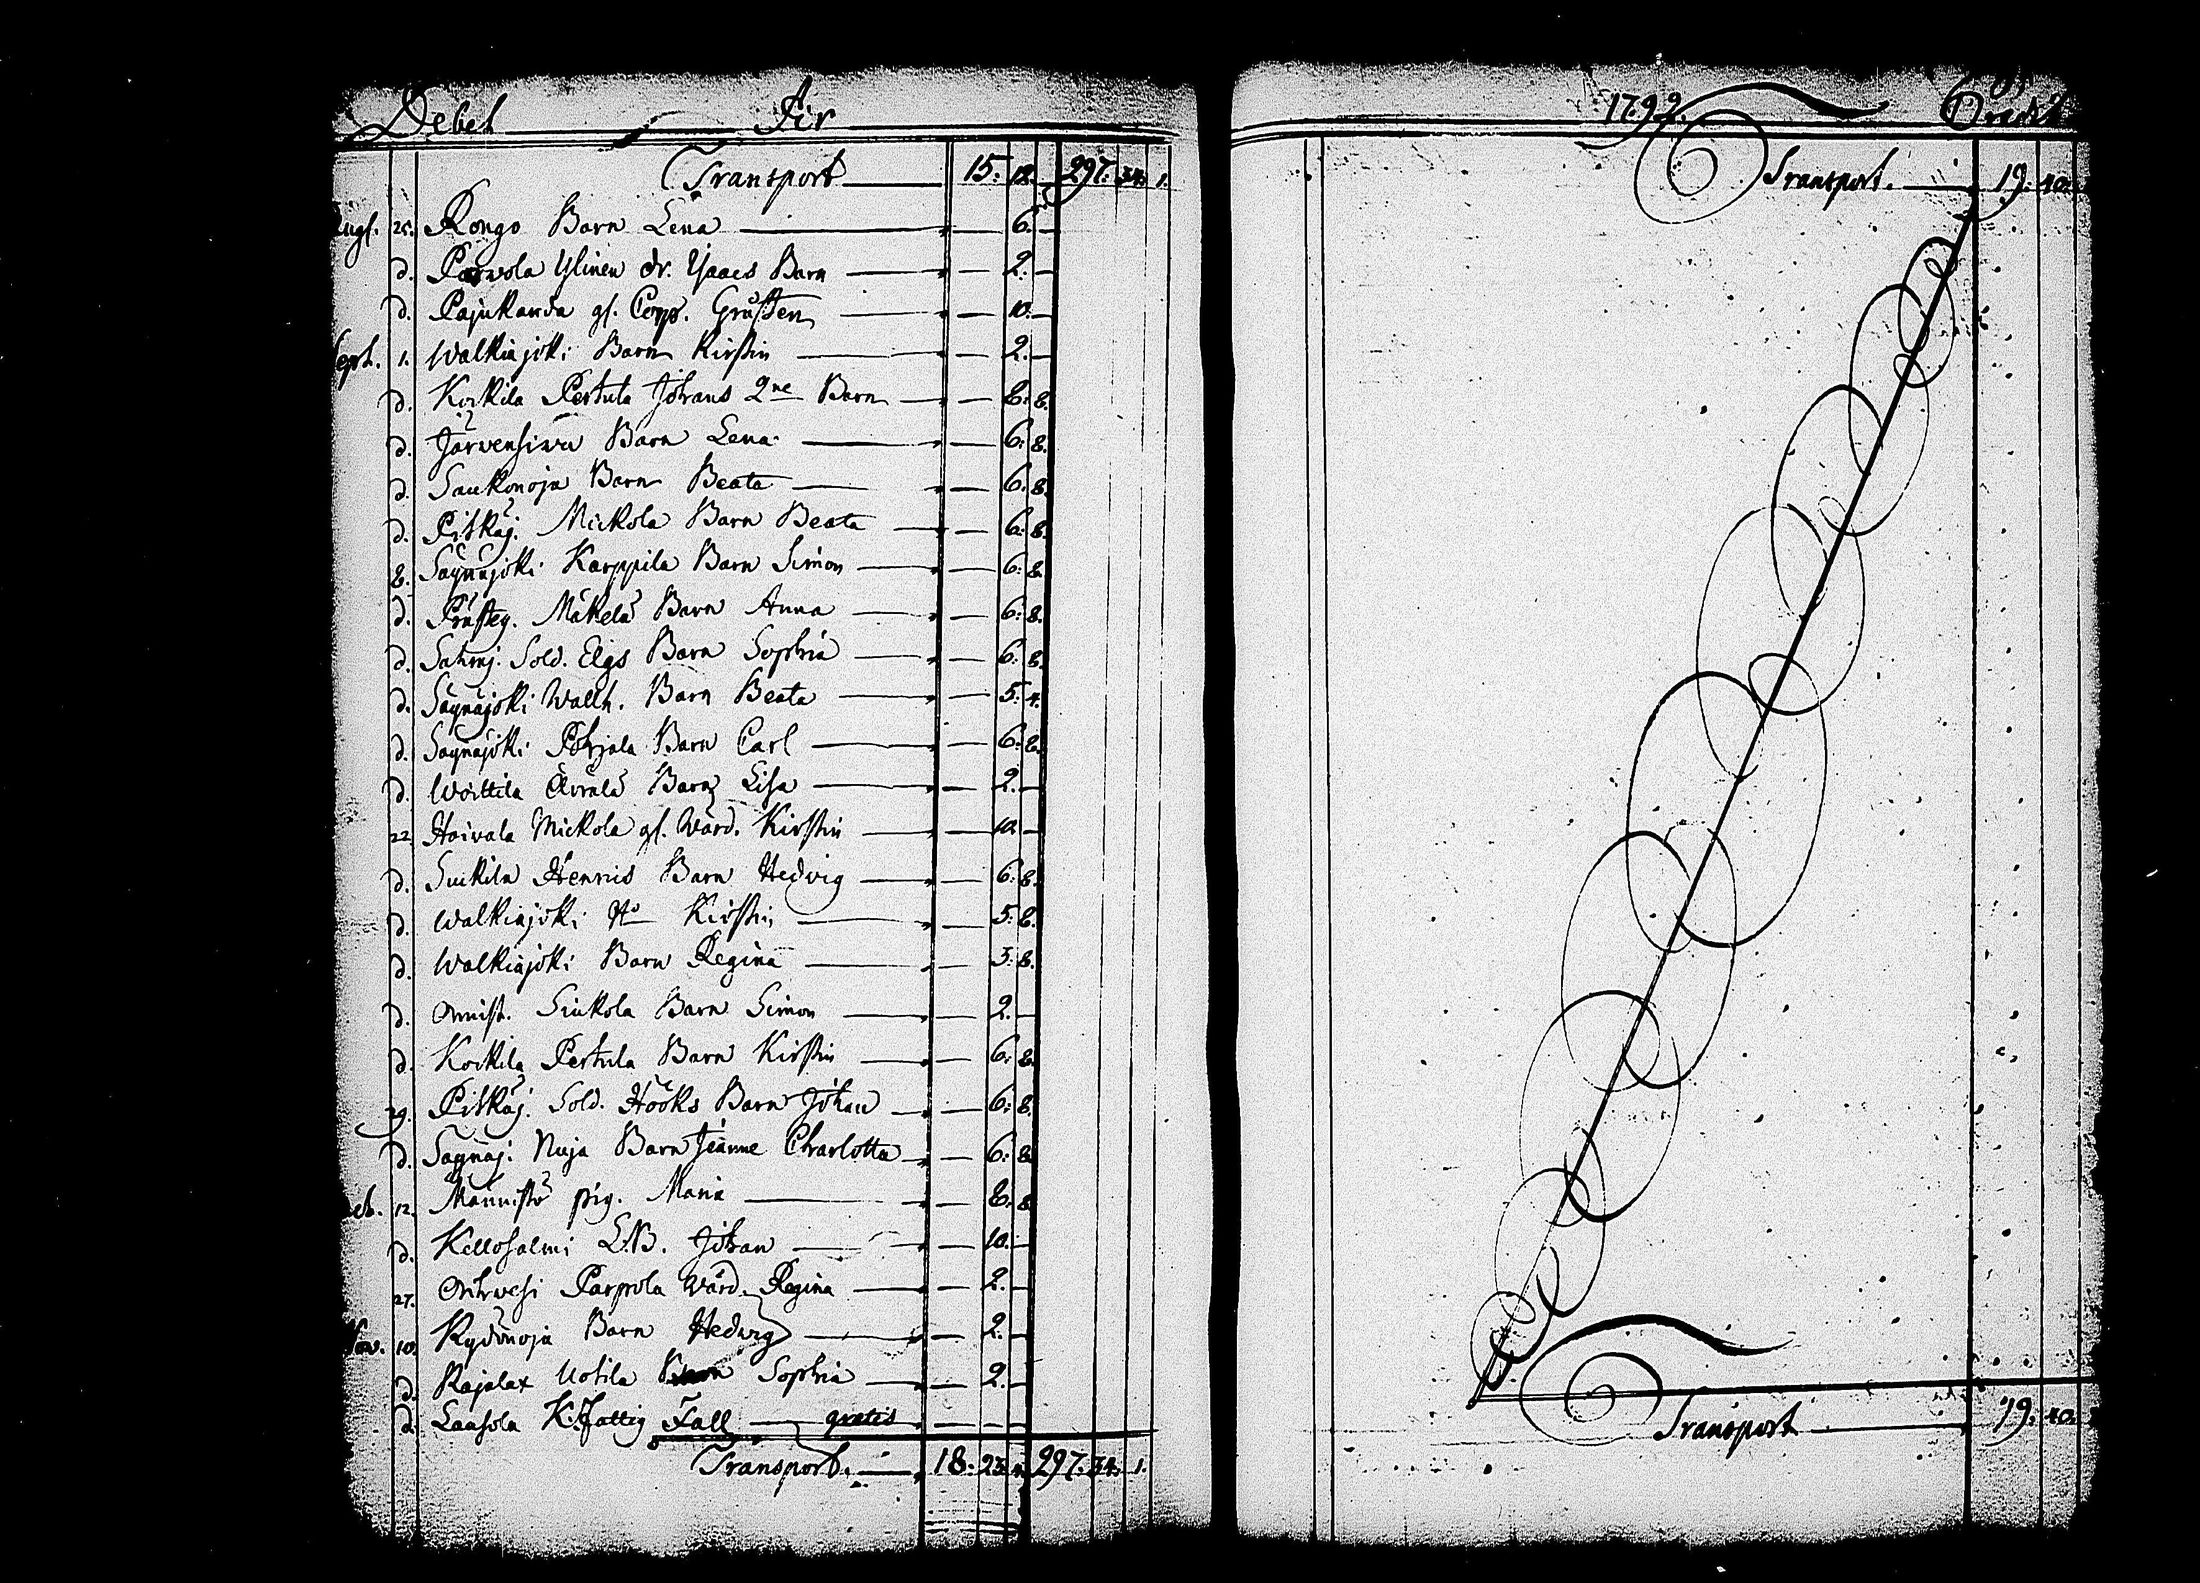 Debet Åhr
Transport 15. 18. 297. 34. 1.
Aug. 25. Rongo Barn Lena 6.
d. Parvola Ylinen dr. Ysaacs Barn 2.
d. Pajukanda gl. Corp. Grusten 10.
Sept. 1. Walkiajoki Barn Kirstin 2.
d. Korkila Pertula Johans 2ne Barn 8. 8.
d. Järwensiwu Barn Lena 6. 8.
d. Saukonoja Barn Beata 6. 8.
d. Pitkäj. Mickola Barn Beata 6. 8.
8. Säynäjoki Karppila Barn Simon 6. 8.
d. Prästeg. Mäkelä Barn Anna 6. 8.
d. Sahraj. Sold. Elgs Barn Sophia 6. 8.
d. Säynäjoki Wallh. Barn Beata 5. 4.
d. Säynäjoki Pohjala Barn Carl 6. 8.
d. Woittila Barn Lisa 2.
22. Hoivala Mickola gl. Wärd. Kirstin 10.
d. Suikila Hennis Barn Hedvig 6. 8.
d. Walkiajoki Kirstin 5. 8.
d. Walkiajoki Barn Regina 3. 8.
d. Siukola Barn Simon 2.
d. Korkila Pertula Barn Kirstin 6. 8.
29. Pitkäj. Sold. Hööks Barn Johan 6. 8.
d. Säynäj. Nuja Barn Jeanne Charlotta 6. 8.
12. Männistö pig. Maria 8. 8.
d. Kellosalmi L.B. Johan 10.
27. Orihvesi Parpola Wärd. Regina 2.
Nov. 10. Kydönoja Barn Hedvig 2.
d. Rajalax Uotila Barn Sophia 2.
d. Laasola K. Fattig Fall gratis
Transport. 18. 23. 4. 297. 34. 1.
1792. Credit
Transport. 19. 40.
Transport 19. 40.